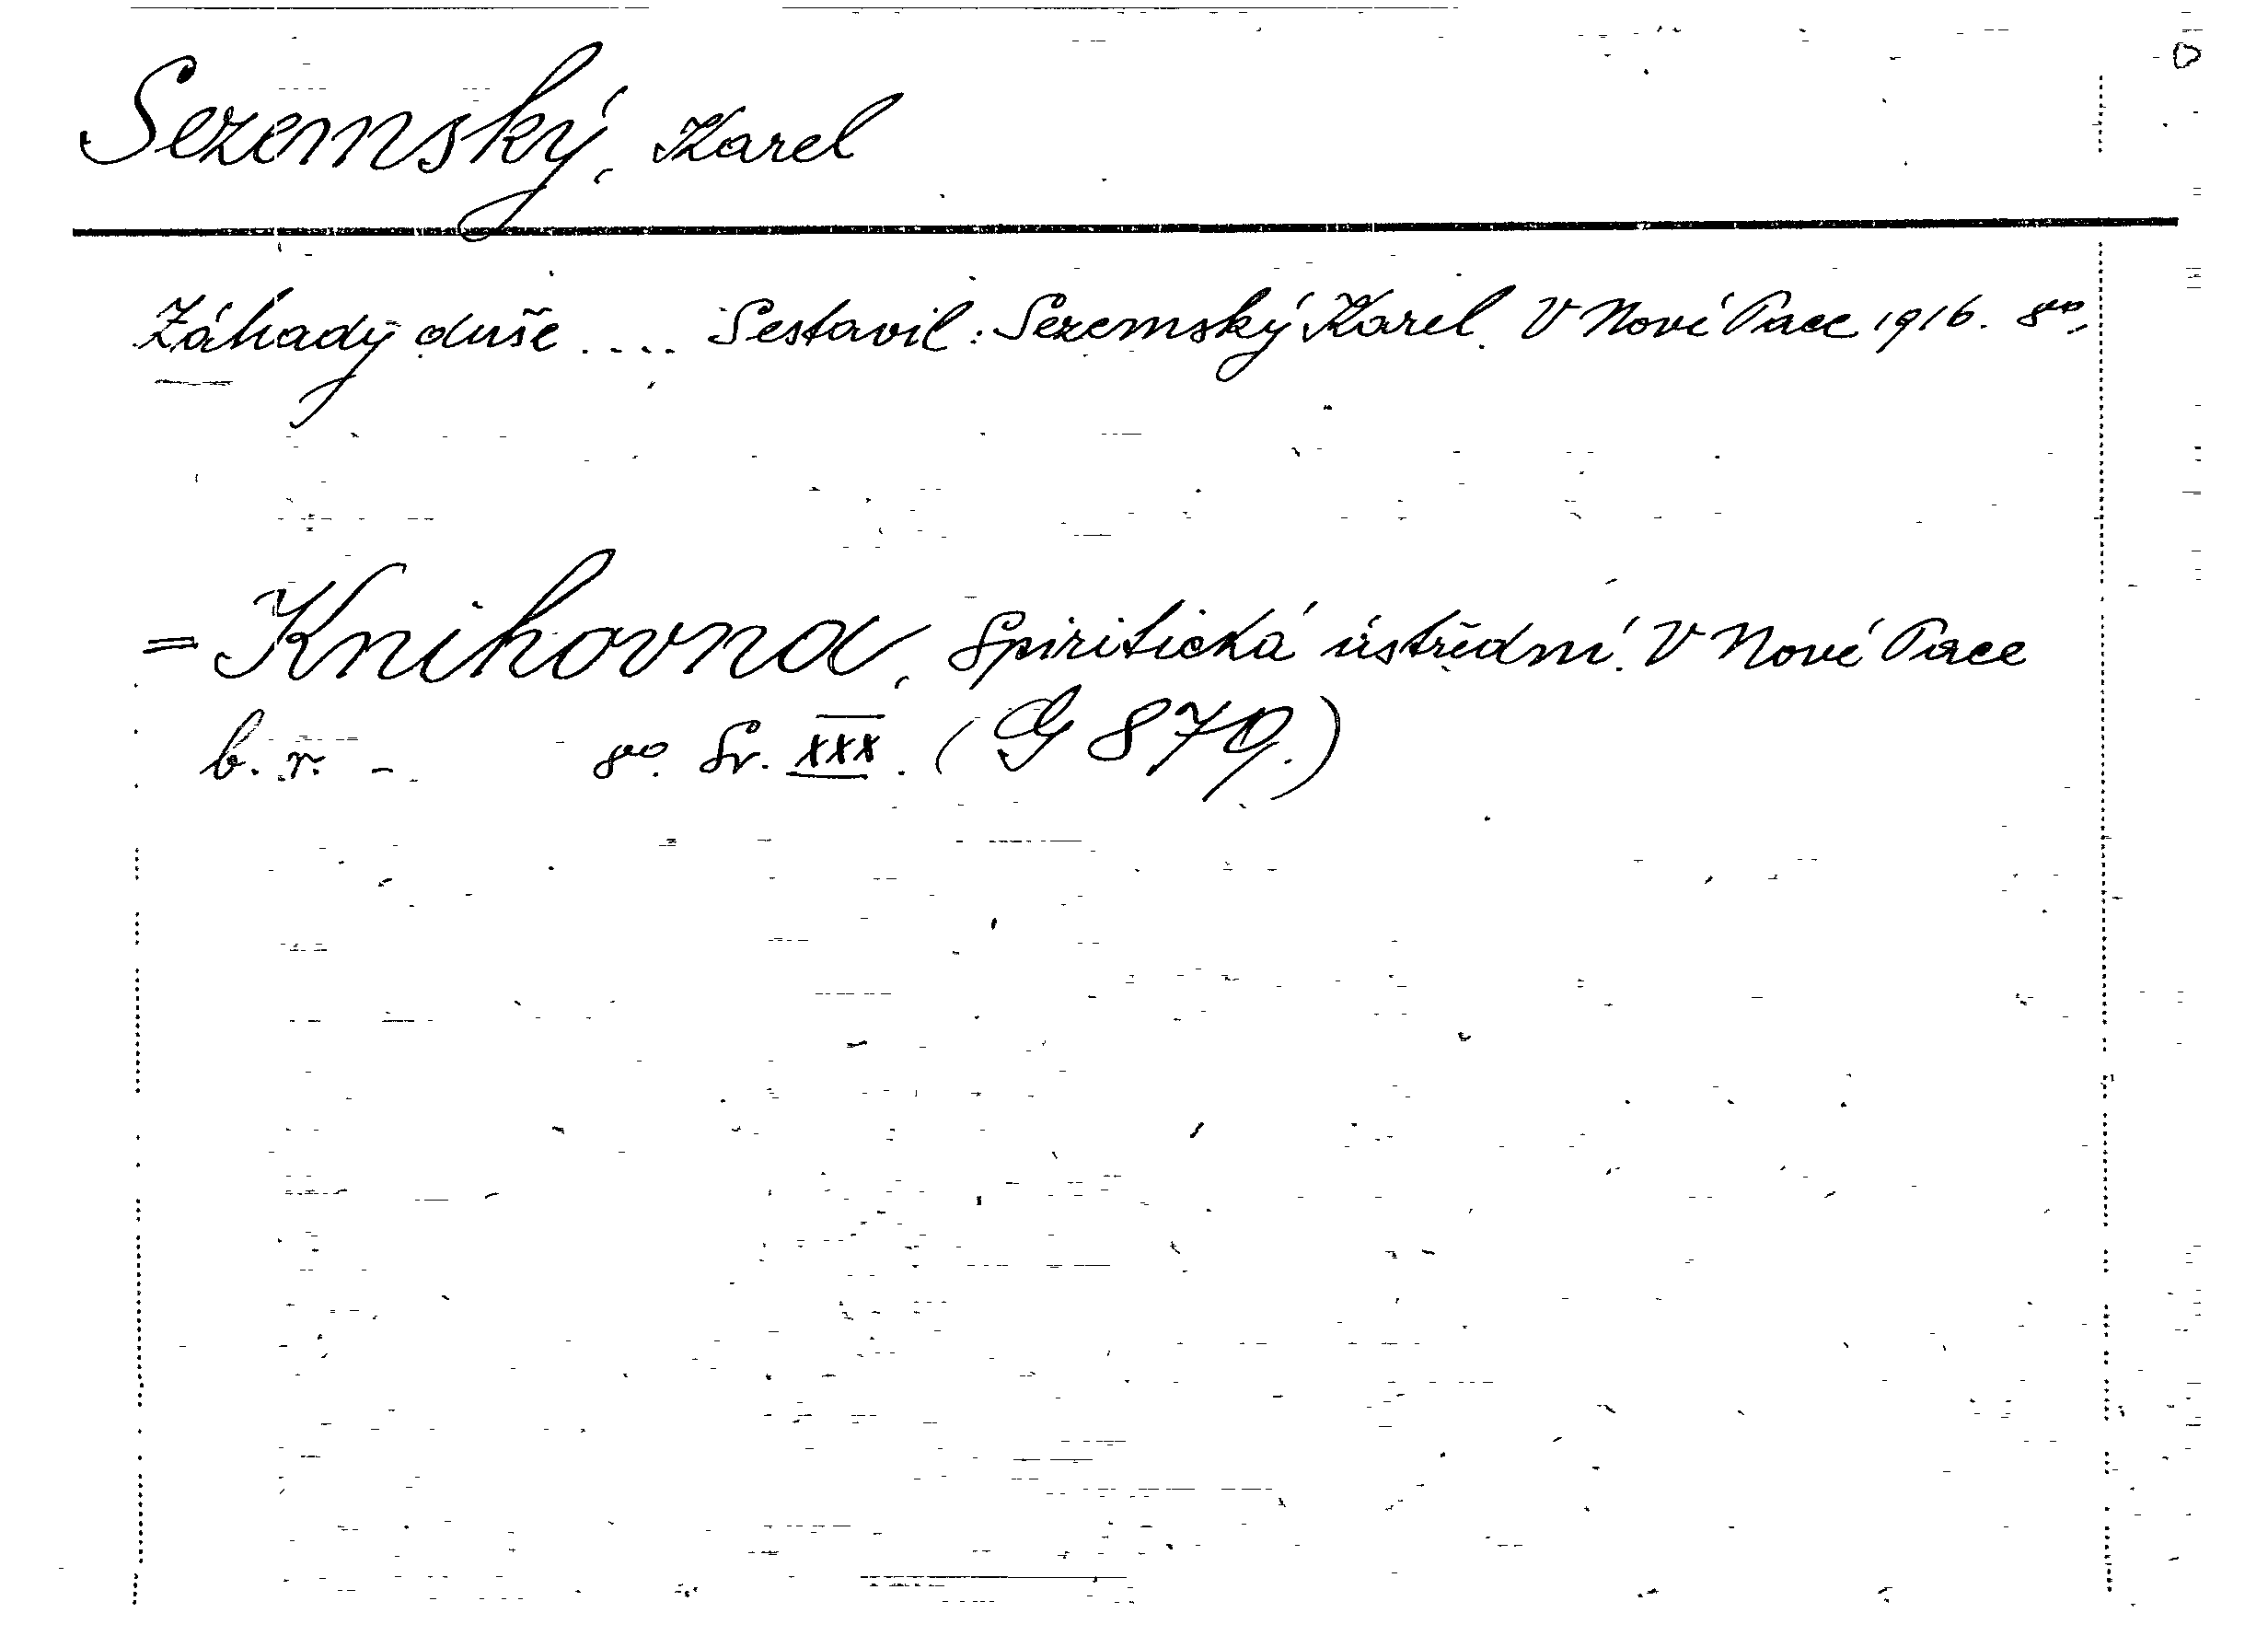 Sezemský, Karel
Záhady duše .... Sestavil: Sezemský Karel. V Nové Pace 1916. 8º.
= Knihovna, Spiritická ústřední. V Nové Pace
b. r. - . 8º. Sv. XXX. (G 879.)